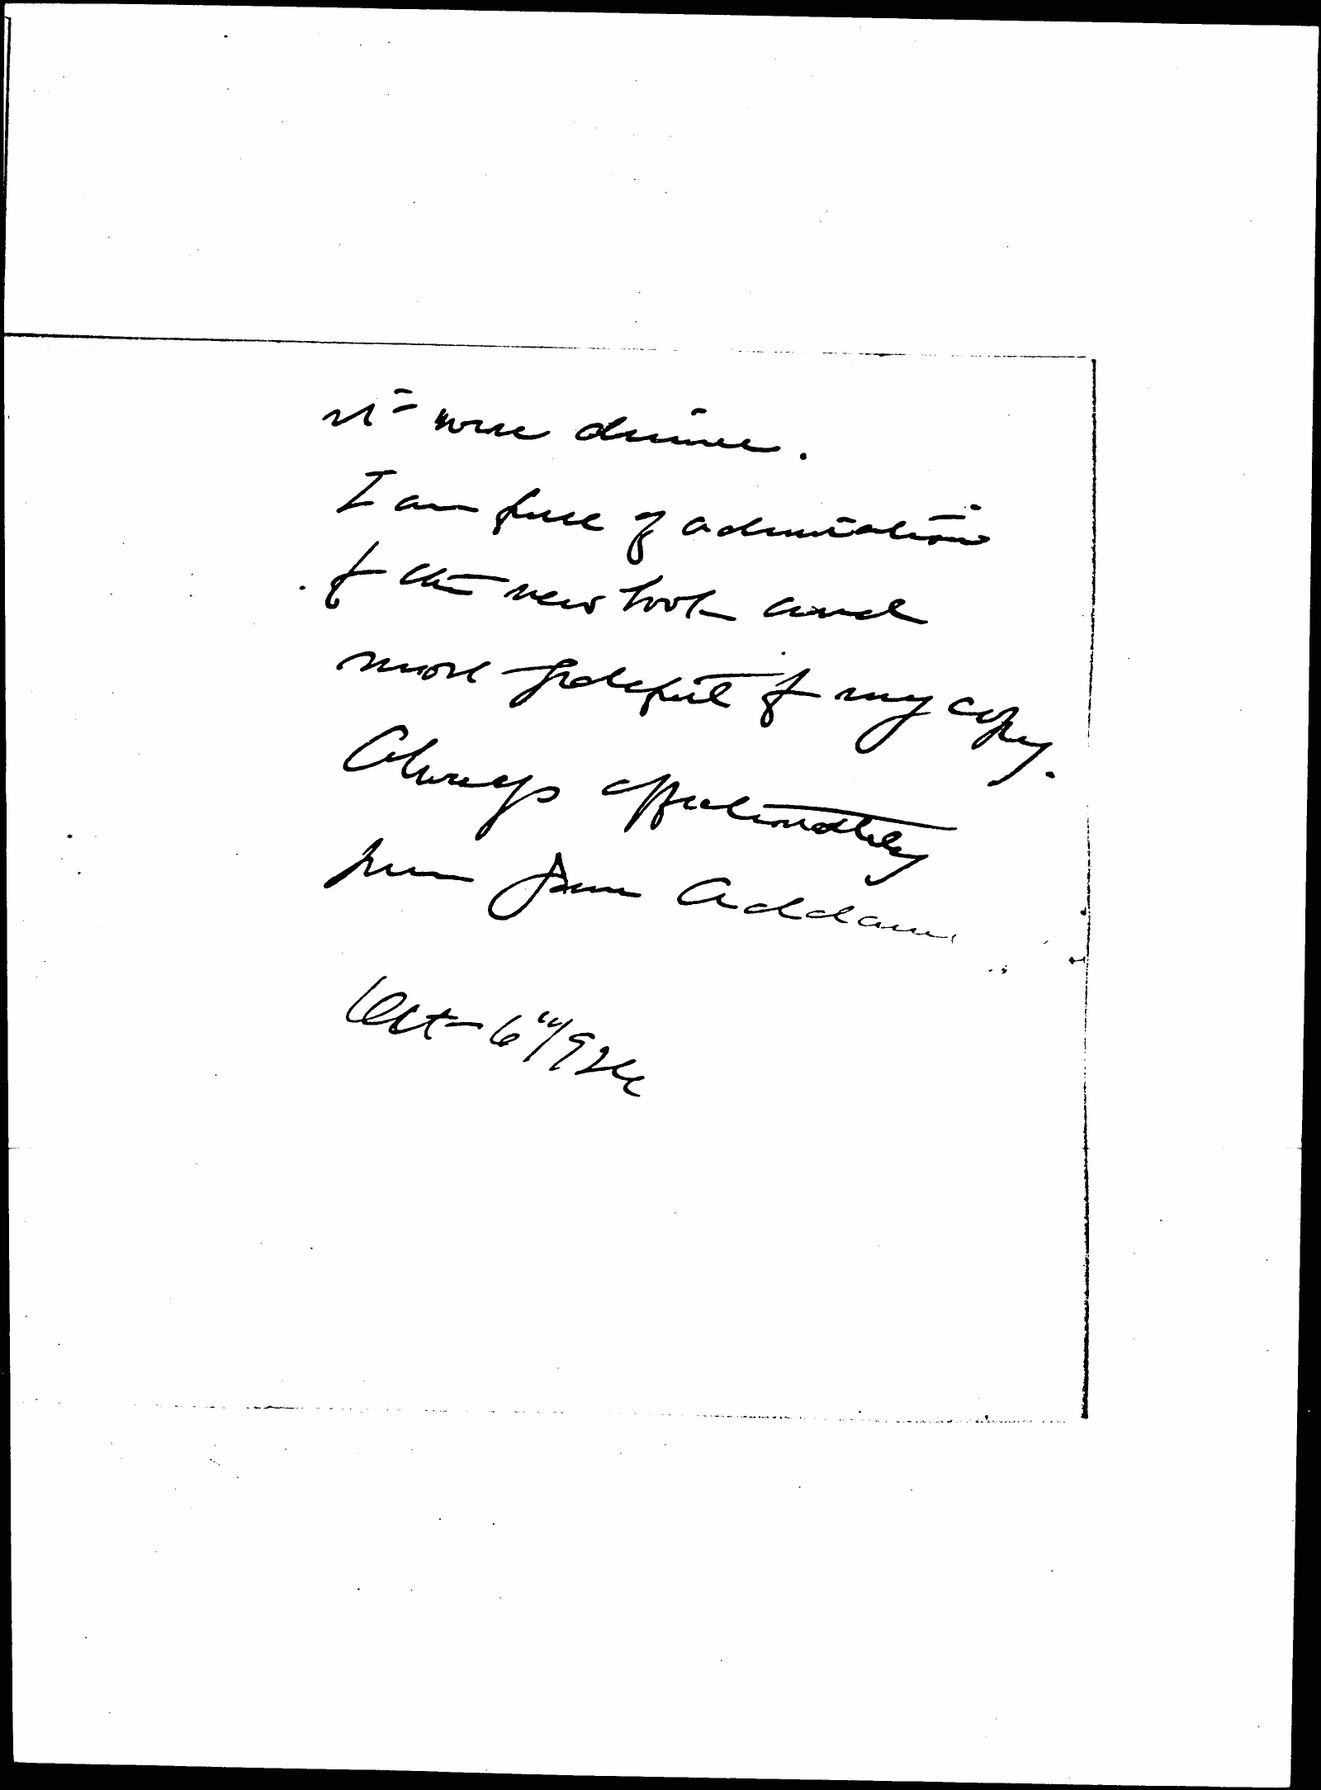 it were divine.
I am full of admiration
of the new book and
most grateful for my copy.
Always affectionately
yours Jane Addams
Oct 6" 1926